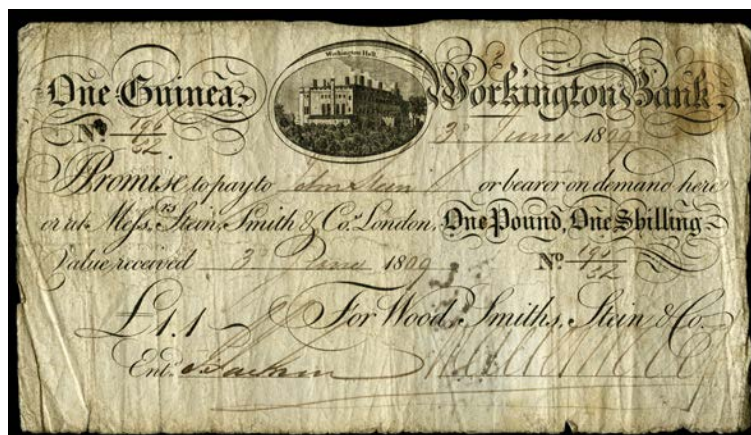 Workington Hall
One Guinea. Workington Bank.
No. 196/52 3d June 1809
I Promise to pay to John Stein or bearer on demand here
or at Messrs. Stein, Smith & Co. London, One Pound, One Shilling
Value received 3d June 1809 No. 196/52
£1.1 For Wood, Smiths, Stein & Co.
Entd.